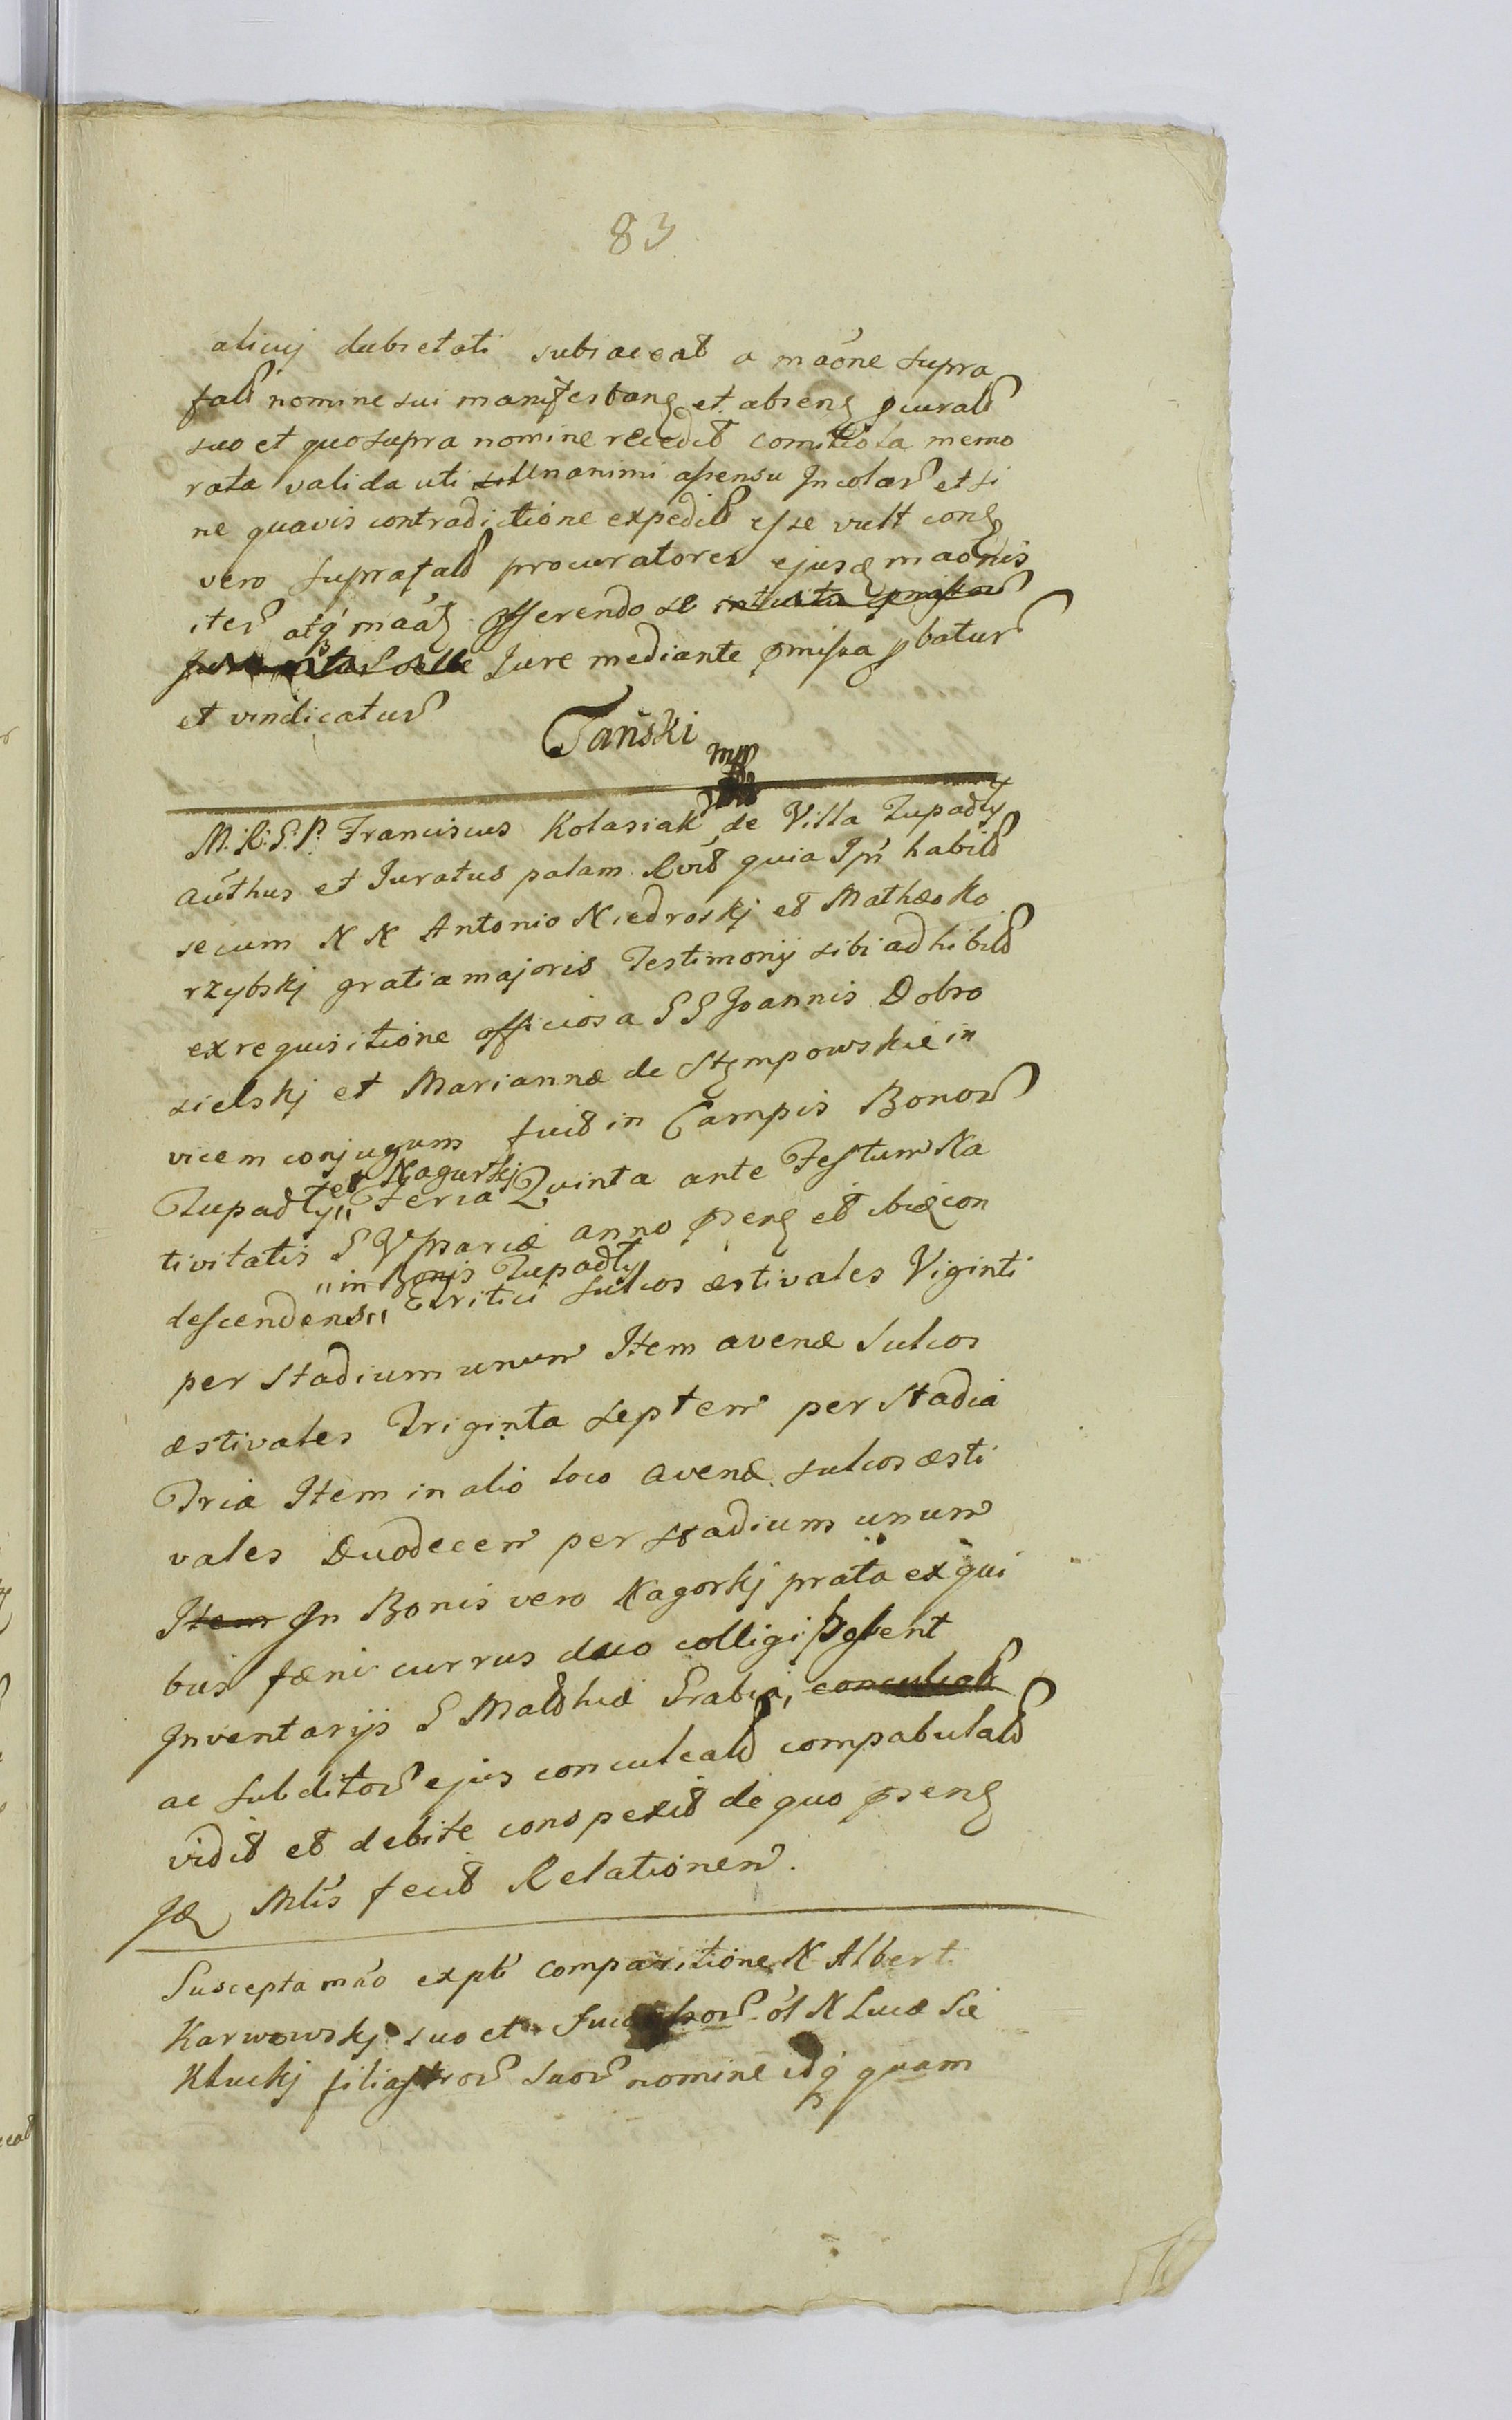 83
alicuj dubietati subiaceat a maóne supra
fať nomine sui manifestanꝭ et absenꝭ ꝓcurať
suo et quo supra nomine recedit comitiola memo
rata valida uti unanimi assensu Incolaꝝ et si
ne quavis contradictione expedit esse vult conꝭ
vero suprafať procuratores ejusꝭ maonis
iteꝝ atqꝫ maáꝭ offerendo se
Jure mediante pmissa ꝓbatuꝝ
et vindicatuꝝ
Tański mp
M. R. G. P. Franciscus Kolasiak de Villa Zupadły
aúthus et Juratus palam Rvit quia Ipś habiť
secum N N Antonio Niedroskj et Mathæo Ko
rzybskj gratia majoris Testimonij sibi adhibiť
ex requisitione officiosa G G Joannis Dobro
sielskj et Mariannæ de Stęmpowskie in
vicem conjugum fuit in Campis Bonoꝝ
et Nagurkj
Zupadły,, Feria Quinta ante Festum Na
tivitatis S V Mariæ anno pꝛsenꝭ et ibiꝭ con
,,in Bonis Zupadły
descendens,, Tritici sulcos æstivales Viginti
per stadium unum Item avenæ sulcos
æstivales Triginta septem per stadia
Tria Item in alio loco avenæ sulcos æsti
vales Duodecem per stadium unum
Item In Bonis vero Nagorkj prata ex qui
bus fæni currus duo colligi
Inventarijs G Mathiæ Grabia,
ac subditoꝝ ejus conculcať compabulať
vidit et debite conspexit de quo pꝛsenꝭ
Iꝭ Mlis fecit Relationem.
Suscepta máo explt comparitione N Alberti
Karwowskj suo et óľ N Lucæ Sie
Kluckj filiastroꝝ suoꝝ nomine idqꝫ quam